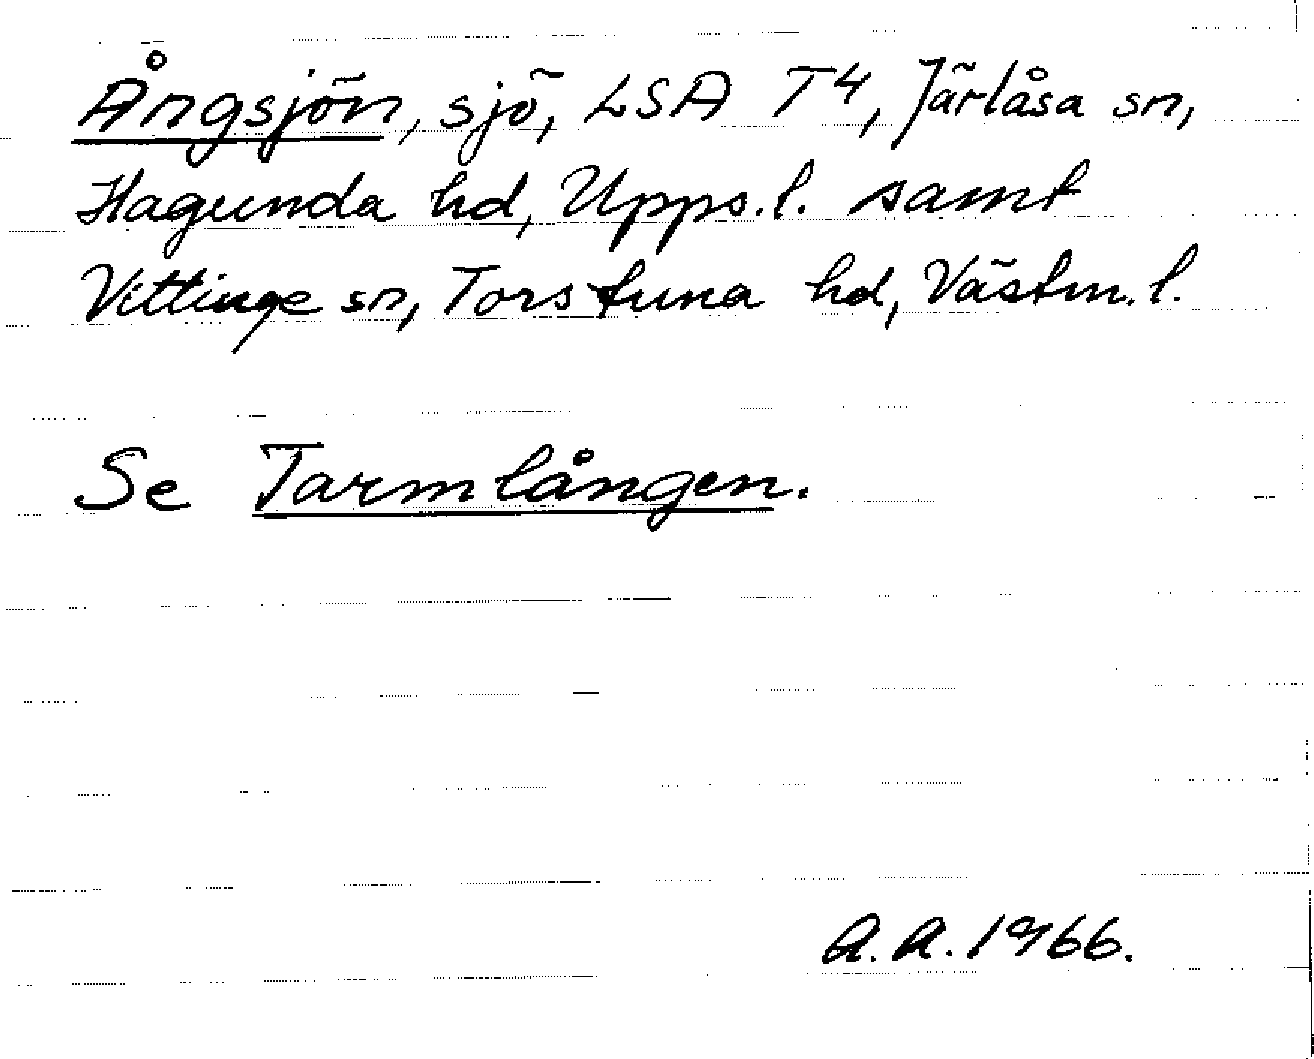 Ångsjön, sjö, LSA T4, Järlåsa sn,
Hagunda hd, Upps.l. samt
Vittinge sn, Torstuna hd, Västm.l.
Se Tarmlången.
A.A.1966.